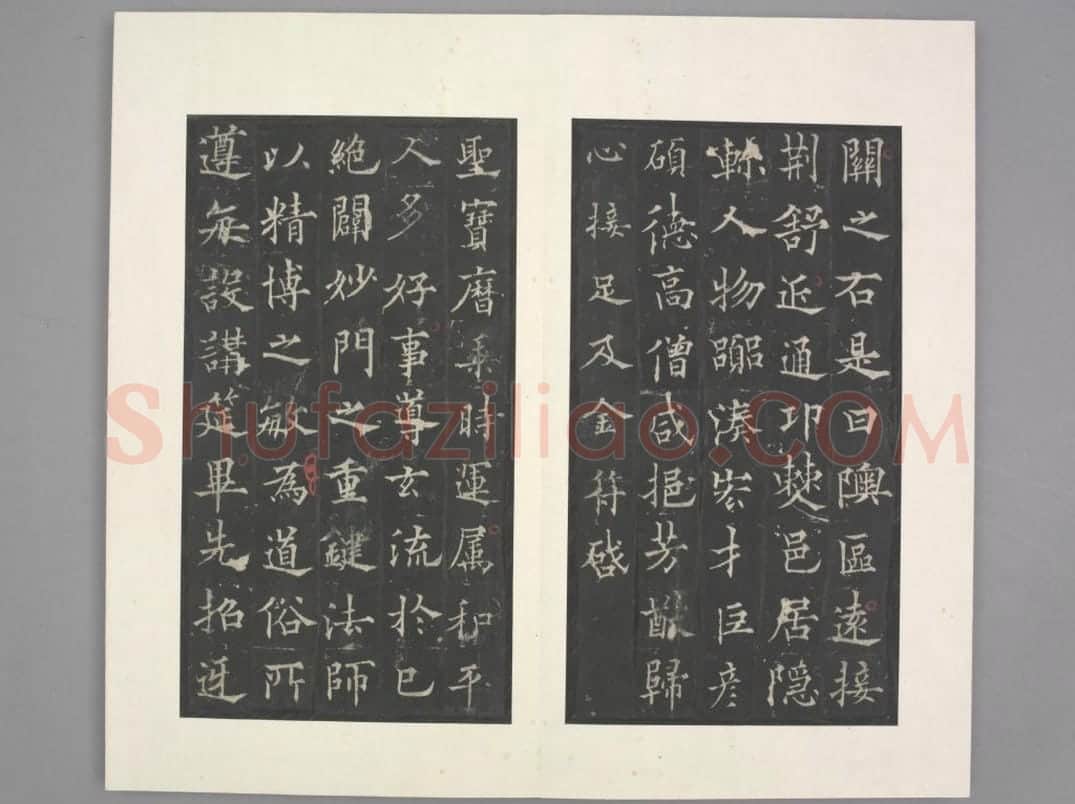 關之右是曰隩區遠接
荆舒近通邛僰邑居隐
軫人物躍湊宏才巨彦
碩德高僧咸挹芳猷歸
心接足及金符啓
聖寶曆乘時運属和平
人多好事導玄流於已
絶闢妙門之重鍵法師
以精博之敏為道俗所
遵每設講筵畢先招迓
Shufaziliao.COM